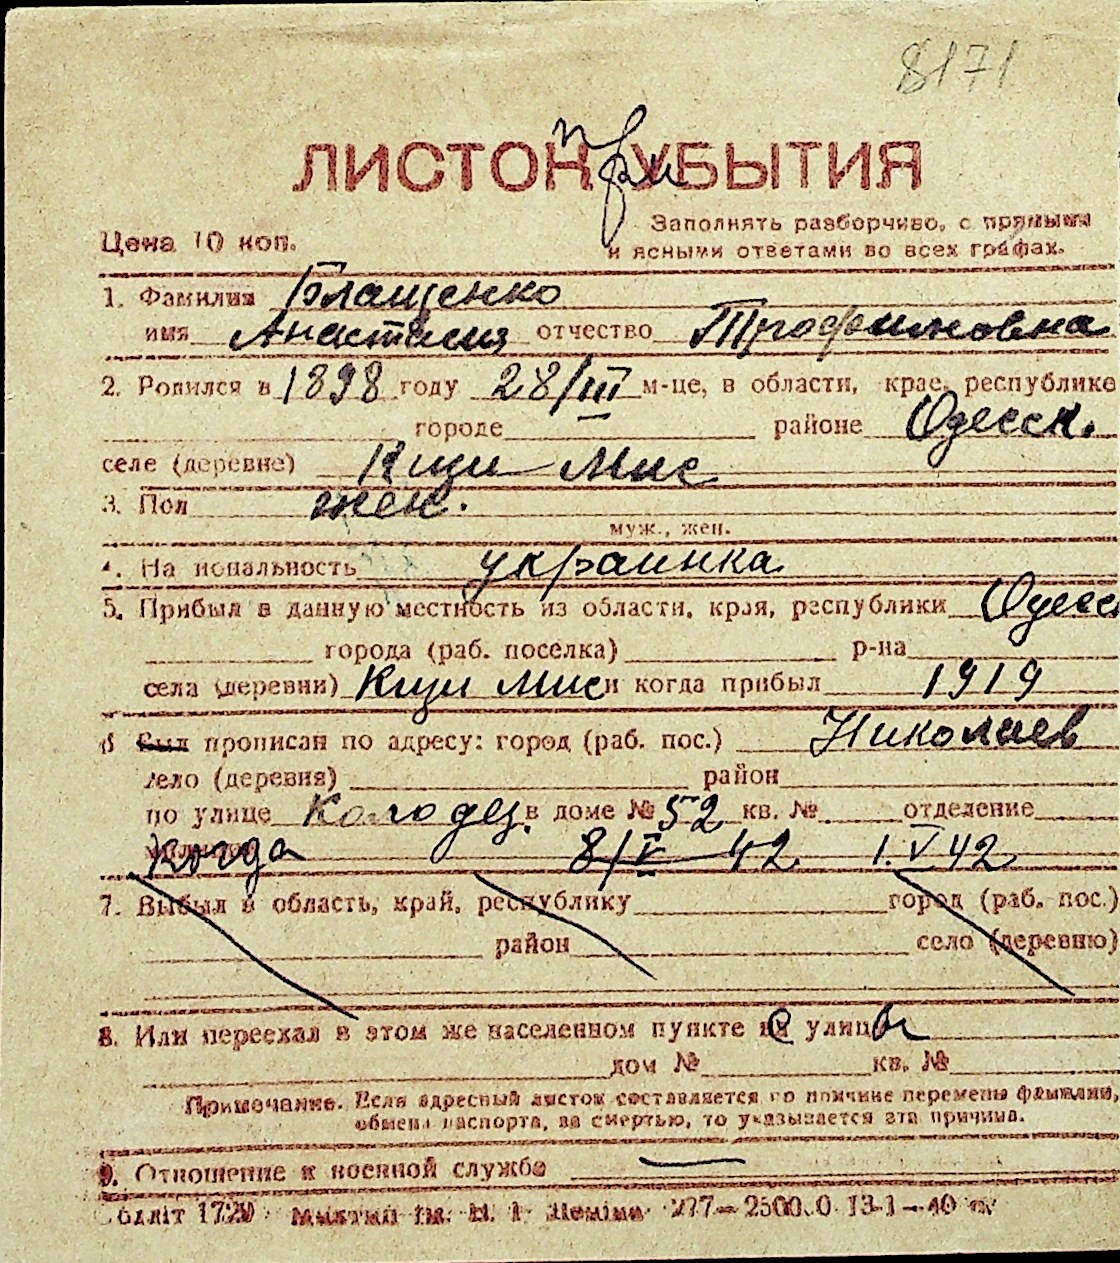 8171
ЛИСТОК при УБЫТИЯ
Цена 10 коп.
Заполнять разборчиво, с прямыми
и ясными ответами во всех графах.
1. Фамилия Блащенко
имя Анастасия отчество Трофимовна
2. Родился в 1898 году 28/III м-це, в области, крае, республике
городе районе Одесск.
селе (деревне) Кици Мис
3. Пол жен.
муж., жен.
4. Национальность украинка
5. Прибыл в данную местность из области, края, республики Одесс
города (раб. поселка) р-на
села (деревни) Кици Мис и когда прибыл 1919
6 Был прописан по адресу: город (раб. пос.) Николаев
село (деревня) район
по улице Колодез. в доме № 52 кв. № отделение
Когда 8/V 42 1.V 42
7. Выбыл в область, край, республику город (раб. пос.)
район село (деревню)
8. Или переехал в этом же населенном пункте с улицы
дом № кв. №
Примечание. Если адресный листок составляется по причине перемены фамилии,
обмена паспорта, за смертью, то указывается эта причина.
9. Отношение к военной службе —
Обллiт 1720 277— 2500 0 13-1—40